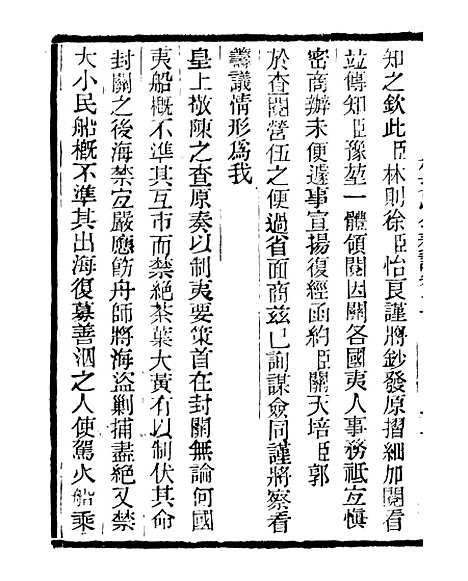 知之欽此臣林則徐臣怡良謹將鈔發原摺細加閱看
竝傳知臣豫堃一體領閱因關各國夷人事務祗宜愼
密商辦未便遽事宣揚復經函約臣關天培臣郭
於查閱營伍之便過省面商兹已詢謀僉同謹將察看
籌議情形爲我
皇上敬陳之查原奏以制夷要策首在封關無論何國
夷船槪不準其互市而禁絕茶葉大黃有以制伏其命
封關之後海禁宜嚴應飭舟師將海盜剿捕盡絕又禁
大小民船槪不準其出海復募善泅之人使駕火船乘